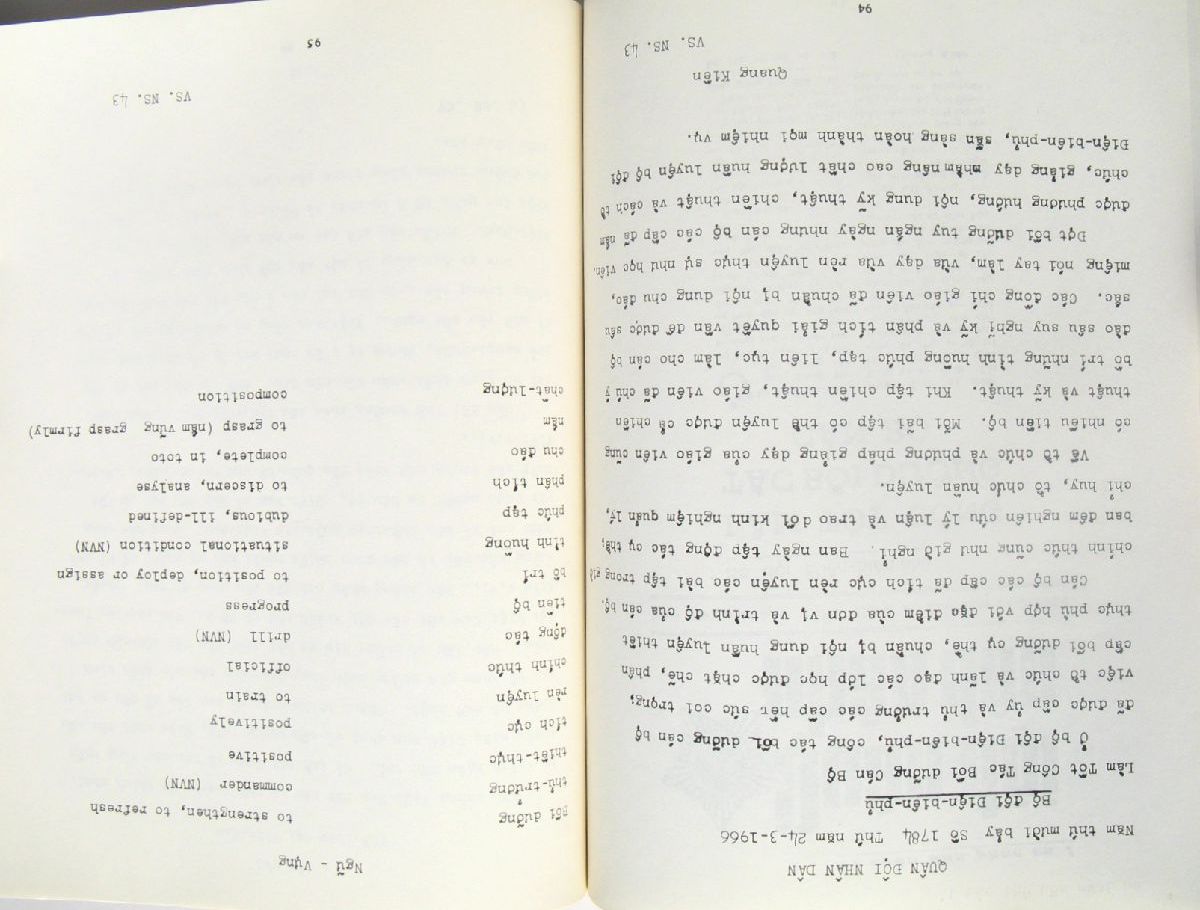 QUÂN ĐỘI NHÂN DÂN
Năm thứ mười bảy Số 1784 Thứ năm 24-3-1966
Bộ đội Điện-biên-phủ
Làm Tốt Công Tác Bồi dưỡng Cán Bộ
Ở bộ đội Điện-biên-phủ, công tác bồi dưỡng cán bộ
đã được cấp ủy và thủ trưởng các cấp hết sức coi trọng,
việc tổ chức và lãnh đạo các lớp học được chặt chẽ, phân
cấp bồi dưỡng cụ thể, chuẩn bị nội dung huấn luyện thiết
thực phù hợp với đặc điểm của đơn vị và trình độ của cán bộ.
Cán bộ các cấp đã tích cực rèn luyện các bài tập trong giờ
chính thức cũng như giờ nghỉ. Ban ngày tập động tác cụ thể,
ban đêm nghiên cứu lý luận và trao đổi kinh nghiệm quản lý,
chỉ huy, tổ chức huấn luyện.
Về tổ chức và phương pháp giảng dạy của giáo viên cũng
có nhiều tiến bộ. Mỗi bài tập có thể luyện được cả chiến
thuật và kỹ thuật. Khi tập chiến thuật, giáo viên đã chú ý
bố trí những tình huống phức tạp, liên tục, làm cho cán bộ
đào sâu suy nghĩ kỹ và phân tích giải quyết vấn đề được sâu
sắc. Các đồng chí giáo viên đã chuẩn bị nội dung chu đáo,
miệng nói tay làm, vừa dạy vừa rèn luyện thực sự như học viên.
Đợt bồi dưỡng tuy ngắn ngày nhưng cán bộ các cấp đã nắm
được phương hướng, nội dung kỹ thuật, chiến thuật và cách tổ
chức, giảng dạy nhằm nâng cao chất lượng huấn luyện bộ đội
Điện-biên-phủ, sẵn sàng hoàn thành mọi nhiệm vụ.
Quang Kiên
VS. NS. 43
94
Ngữ - Vựng
Bồi dưỡng to strengthen, to refresh
thủ-trưởng commander (NVN)
thiết-thực positive
tích cực positively
rèn luyện to train
chính thức official
động tác drill (NVN)
tiến bộ progress
bố trí to position, deploy or assign
tình huống situational condition (NVN)
phức tạp dubious, ill-defined
phân tích to discern, analyse
chu đáo complete, in toto
nắm to grasp (nắm vững grasp firmly)
chất-lượng composition
VS. NS. 43
95